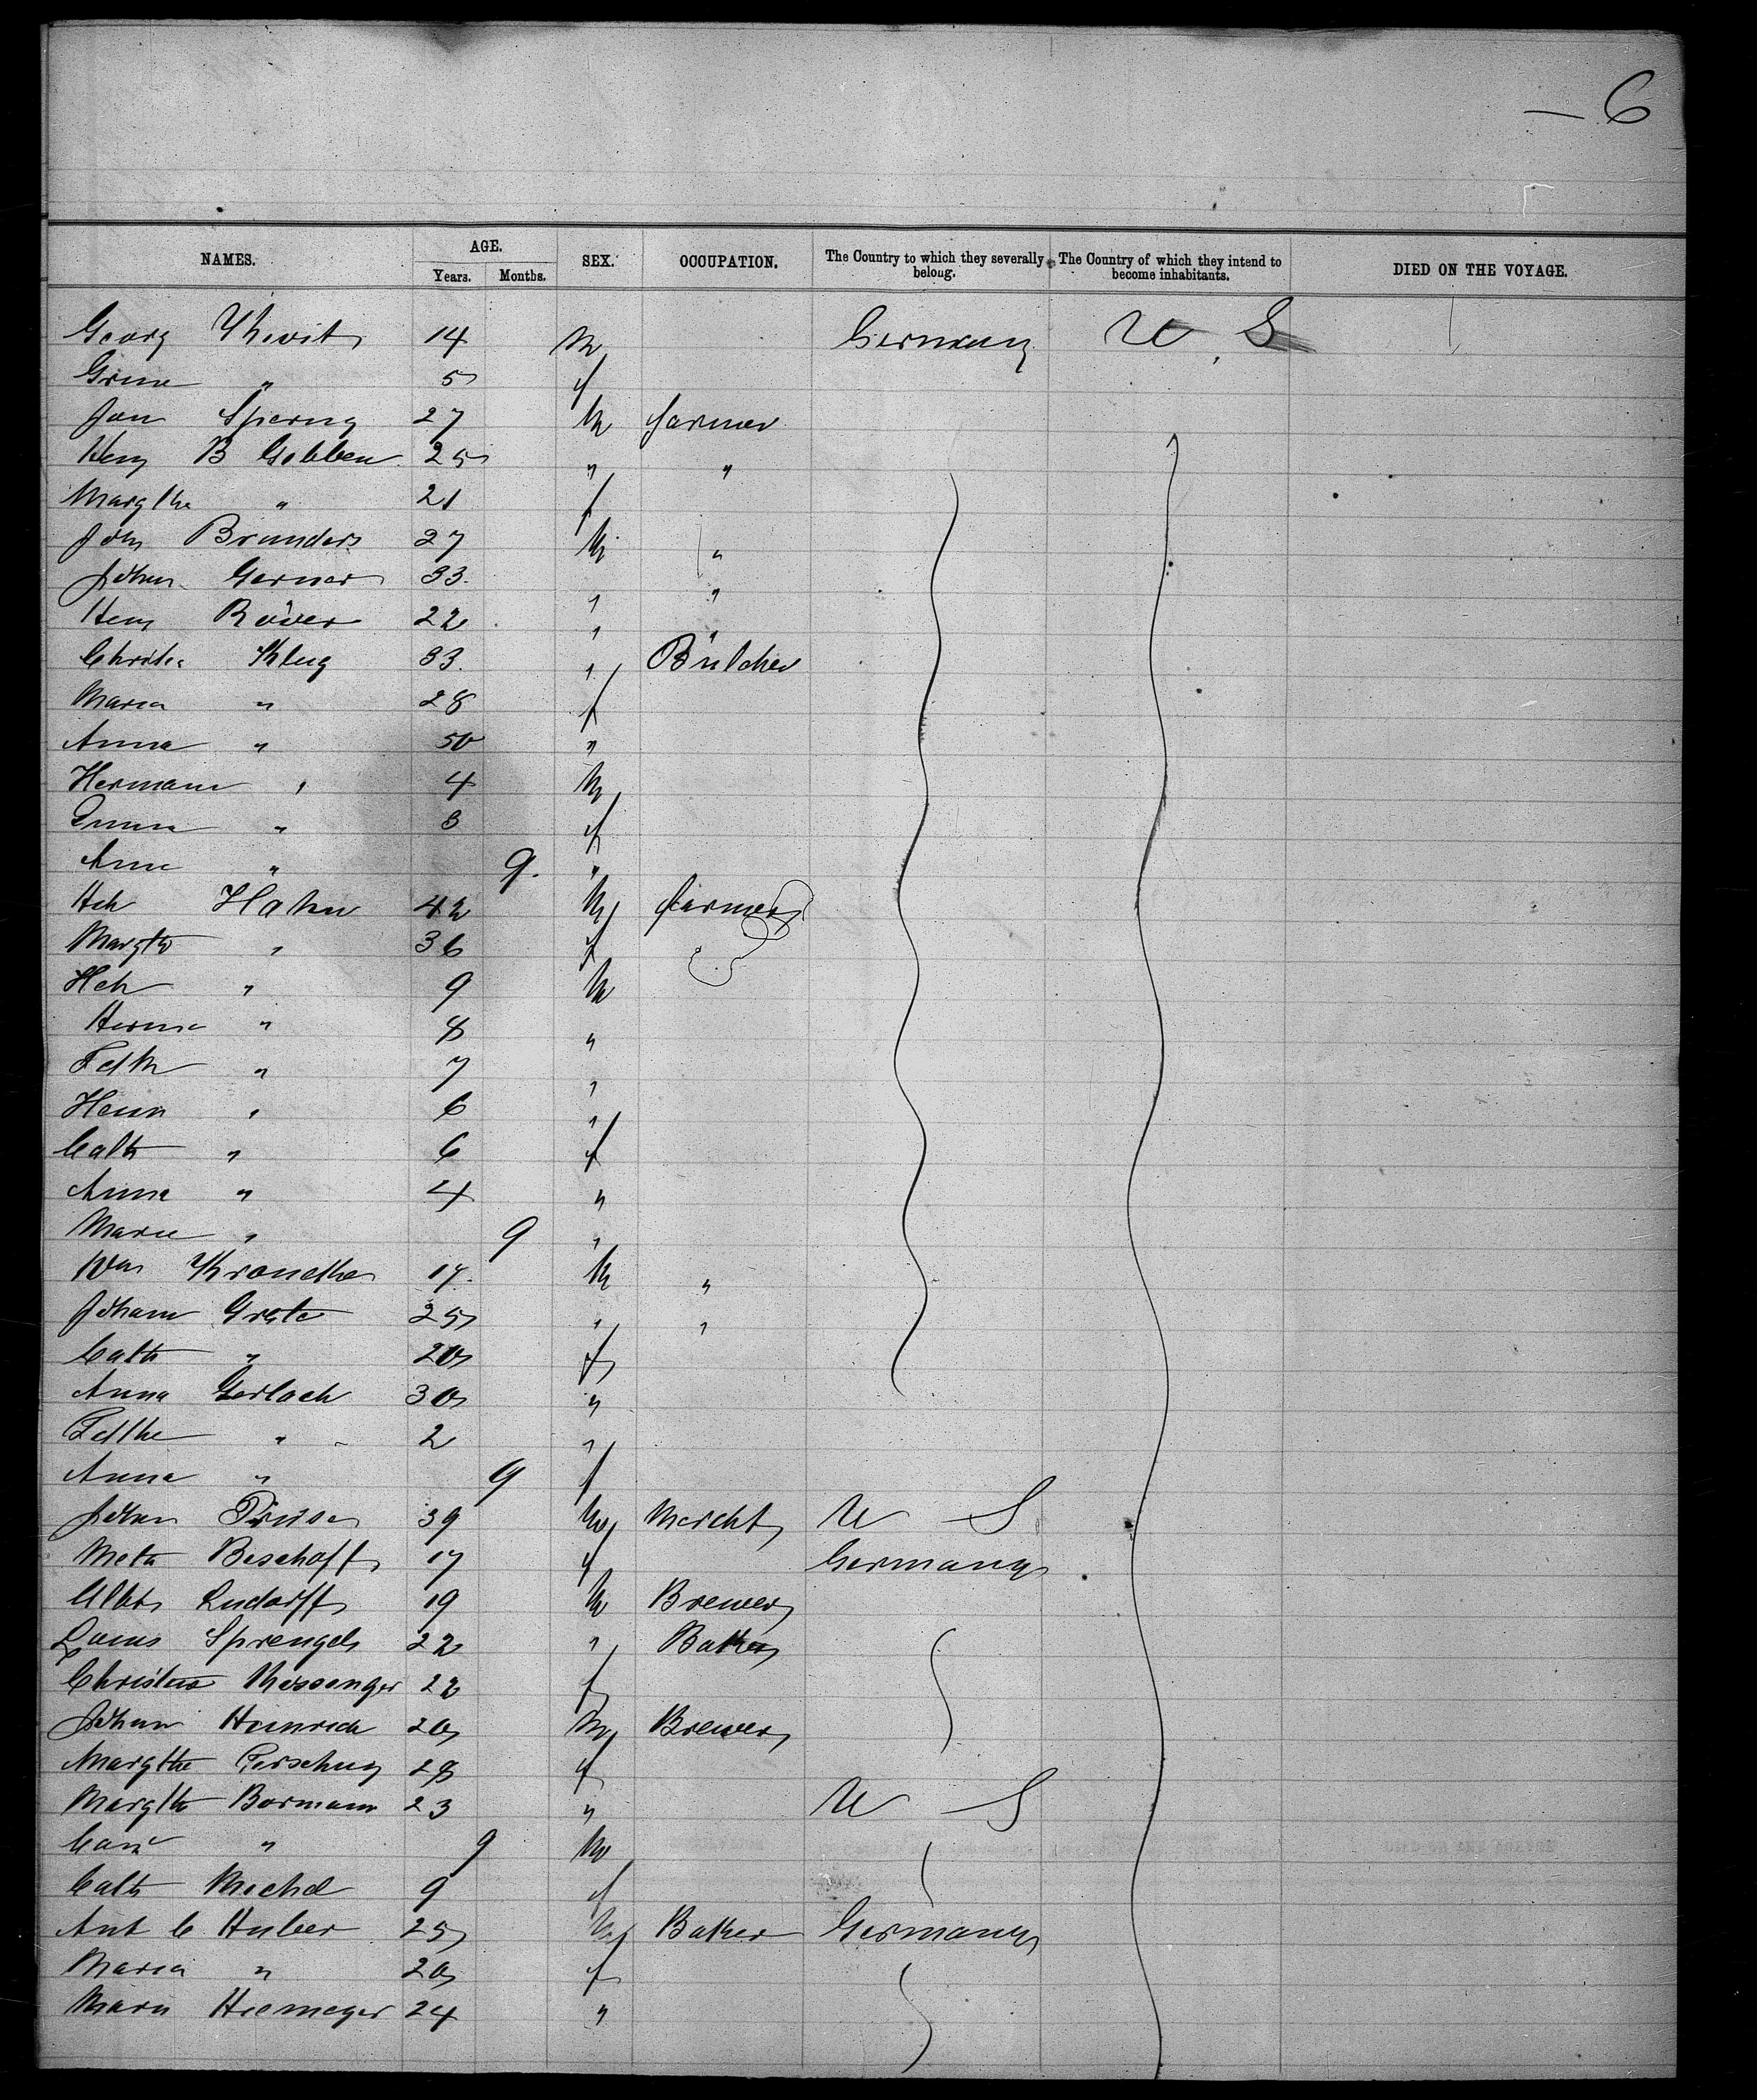 — 6
NAMES. AGE. SEX. OCCUPATION. The Country to which they severally belong. The Country of which they intend to become inhabitants. DIED ON THE VOYAGE.
Years. Months.
Georg 14 M Germany U S
5 f
Jan Sperng 27 M farmer
Heny B Gobben 25 " "
Margthe " 21 f
Joh Brunders 27 M "
Johan Gerner 33. " "
Heny Röver 22 " "
Christn Klug 33. " Butcher
Maria " 28 f
Anna " 50 "
Hermann " 4 M
Emma " 3 f
Anna " 9. "
Hch Hahn 42 M farmer
Margth " 36 f
Hch " 9 M
Herma " 8 "
" 7 "
Henn " 6 "
Cath " 6 f
Anna " 4 "
Marie " 9 "
Wm 17. M "
Johann Grote 25 " "
Cath " 20 f
Anna Gerlach 30 "
" 2 "
Anna " 9 f
Johan 39 M Mercht U S
Meta Beschoff 17 f Germany
Albt Ludorff 19 M Brewer
Louis Sprengel 22 " Baker
Christine Messenger 22 f
Johann Heinrich 20 M Brewer
Margthe 28 f
Margth Bormann 23 " U S
" 9 M
Cath Mechel 9 f
Ant C Huber 25 M Baker Germany
Maria " 20 f
Marie Hiemeyer 24 "